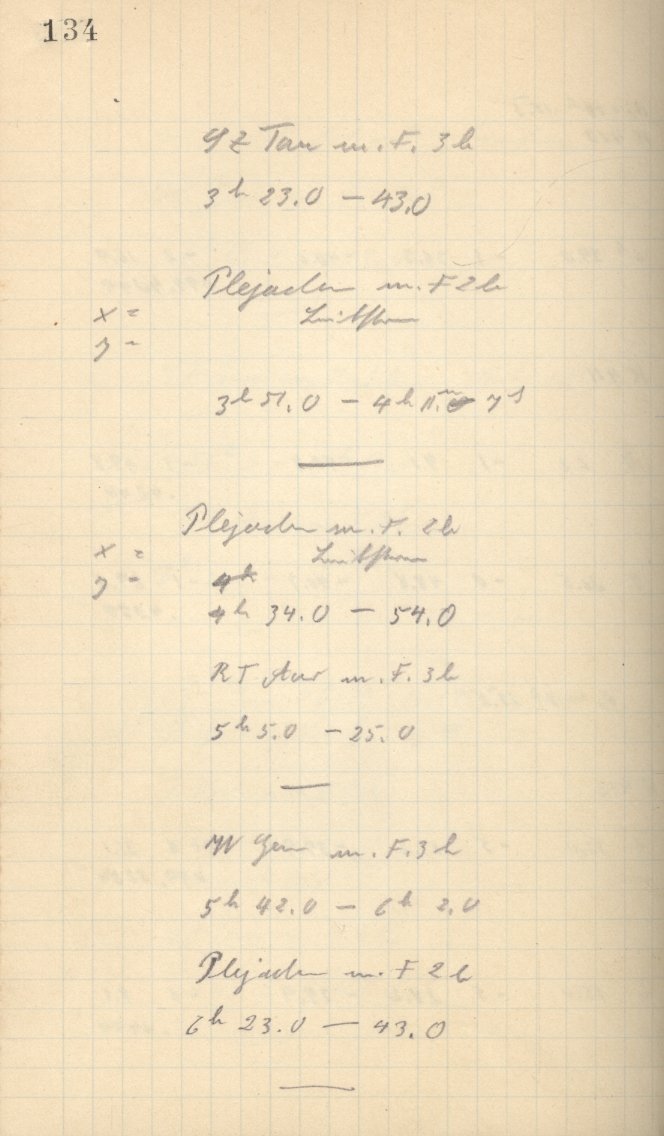 134
SZ Tau m. F. 3 b
3h 23.0 – 43.0
Plejaden m. F 2 b
x = Leitstern
y =
3h 51.0 – 4h 11.m 7s
Plejaden m. F. 2b
x = Leitstern
y = 4h
4h 34.0 – 54.0
RT Aur m. F. 3b
5h 5.0 – 25.0
W Gem m. F. 3 b
5h 42.0 – 6h 2.0
Plejaden m. F 2 b
6h 23.0 – 43.0